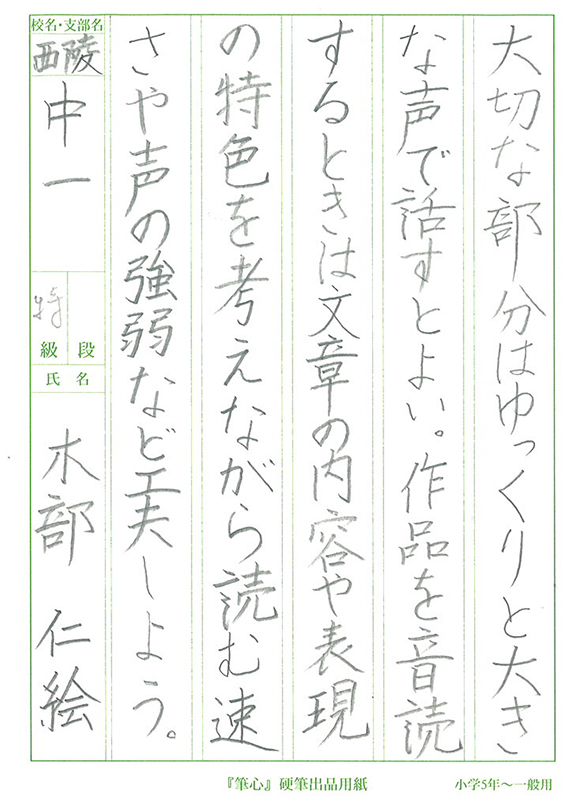 大切な部分はゆっくりと大き
な声で話すとよい。作品を音読
するときは文章の内容や表現
の特色を考えながら読む速
さや声の強弱など工夫しよう。
校名・支部名
西陵
中一
特
級 段
氏 名
木部 仁絵
『筆心』硬筆出品用紙
小学5年〜一般用